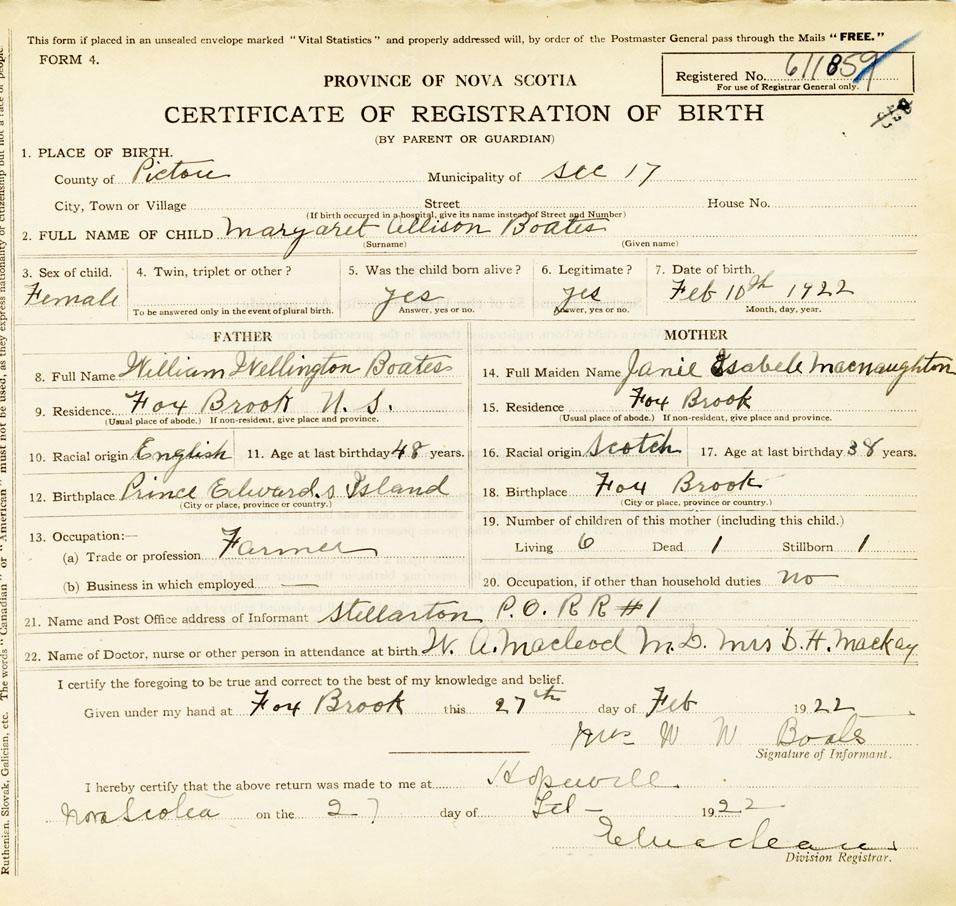 This form if placed in an unsealed envelope marked "Vital Statistics" and properly addressed will, by order of the Postmaster General pass through the Mails "FREE."
FORM 4.
Registered No. 611859
For use of Registrar General only.
PROVINCE OF NOVA SCOTIA
CERTIFICATE OF REGISTRATION OF BIRTH
(BY PARENT OR GUARDIAN)
1. PLACE OF BIRTH.
County of Pictou Municipality of Sec 17
City, Town or Village Street House No.
(If birth occurred in a hospital, give its name instead of Street and Number)
2. FULL NAME OF CHILD Margaret Allison Boates
(Surname) (Given name)
3. Sex of child. 4. Twin, triplet or other? 5. Was the child born alive? 6. Legitimate? 7. Date of birth.
Female yes yes Feb 10th 1922
To be answered only in the event of plural birth. Answer, yes or no. Answer, yes or no. Month, day, year.
FATHER
8. Full Name William Wellington Boates
9. Residence Fox Brook N. S.
(Usual place of abode.) If non-resident, give place and province.
10. Racial origin English 11. Age at last birthday 48 years.
12. Birthplace Prince Edwards Island
(City or place, province or country.)
13. Occupation:—
(a) Trade or profession Farmer
(b) Business in which employed —
MOTHER
14. Full Maiden Name Janie Isabell Macnaughton
15. Residence Fox Brook
(Usual place of abode.) If non-resident, give place and province.
16. Racial origin Scotch 17. Age at last birthday 38 years.
18. Birthplace Fox Brook
(City or place, province or country.)
19. Number of children of this mother (including this child.)
Living 6 Dead 1 Stillborn 1
20. Occupation, if other than household duties no
21. Name and Post Office address of Informant Stellarton P.O. R R #1
22. Name of Doctor, nurse or other person in attendance at birth W. A. Macleod M.D. Mrs D.H. Mackay
I certify the foregoing to be true and correct to the best of my knowledge and belief.
Given under my hand at Fox Brook this 27th day of Feb 1922
Mrs W W Boates
Signature of Informant.
I hereby certify that the above return was made to me at Hopewell
Nova Scotia on the 27 day of Feb 1922
Division Registrar.
Ruthenian, Slovak, Galician, etc. The words "Canadian" or "American" must not be used, as they express nationality or citizenship but not a race of people.